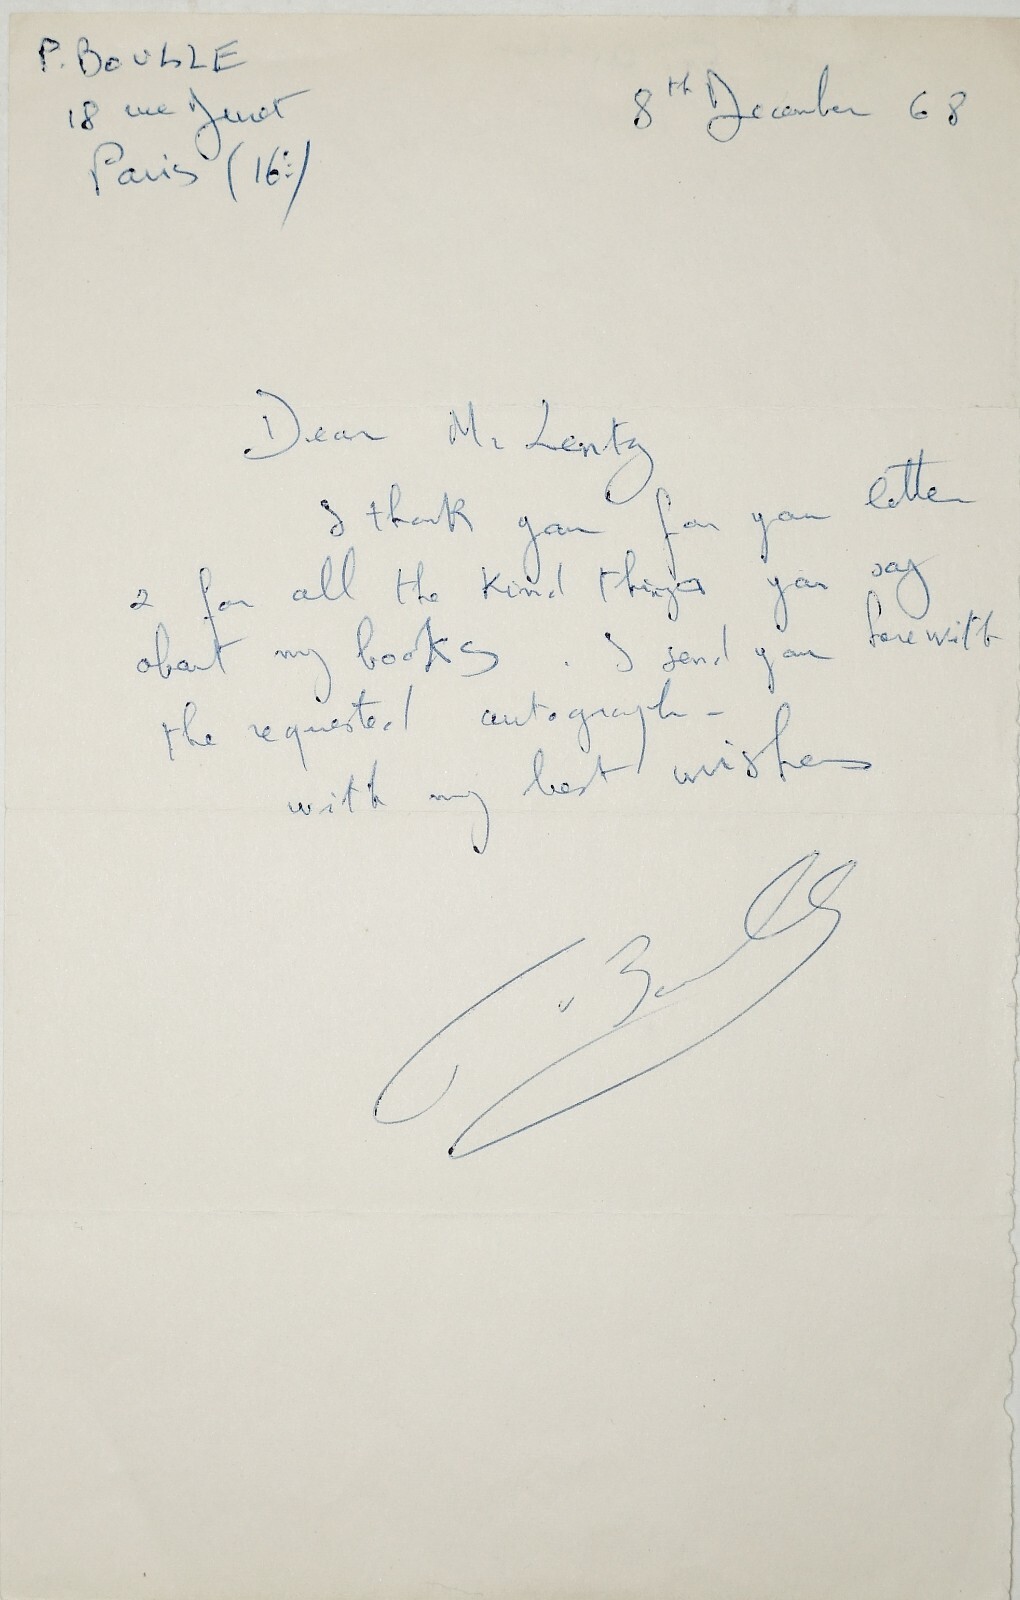 P. BOULLE
18 rue Duret
Paris (16e)
8th December 68
Dear Mr Lentz
I thank you for your letter
& for all the kind things you say
about my books. I send you herewith
the requested autograph -
with my best wishes
P. Boulle